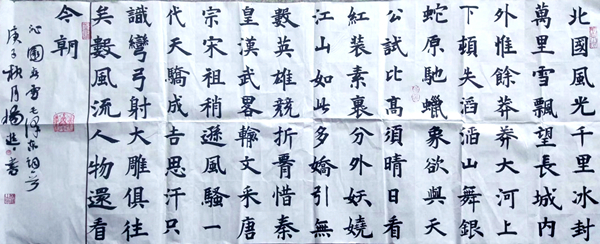 北國風光千里冰封
萬里雪飄望長城內
外惟餘莽莽大河上
下頓失滔滔山舞銀
蛇原馳蠟象欲與天
公試比高須晴日看
紅裝素裹分外妖嬈
江山如此多嬌引無
數英雄競折腰惜秦
皇漢武畧輸文采唐
宗宋祖稍遜風騷一
代天驕成吉思汗只
識彎弓射大雕俱往
矣數風流人物還看
今朝
沁園春雪毛澤東詞
庚子秋月楊書